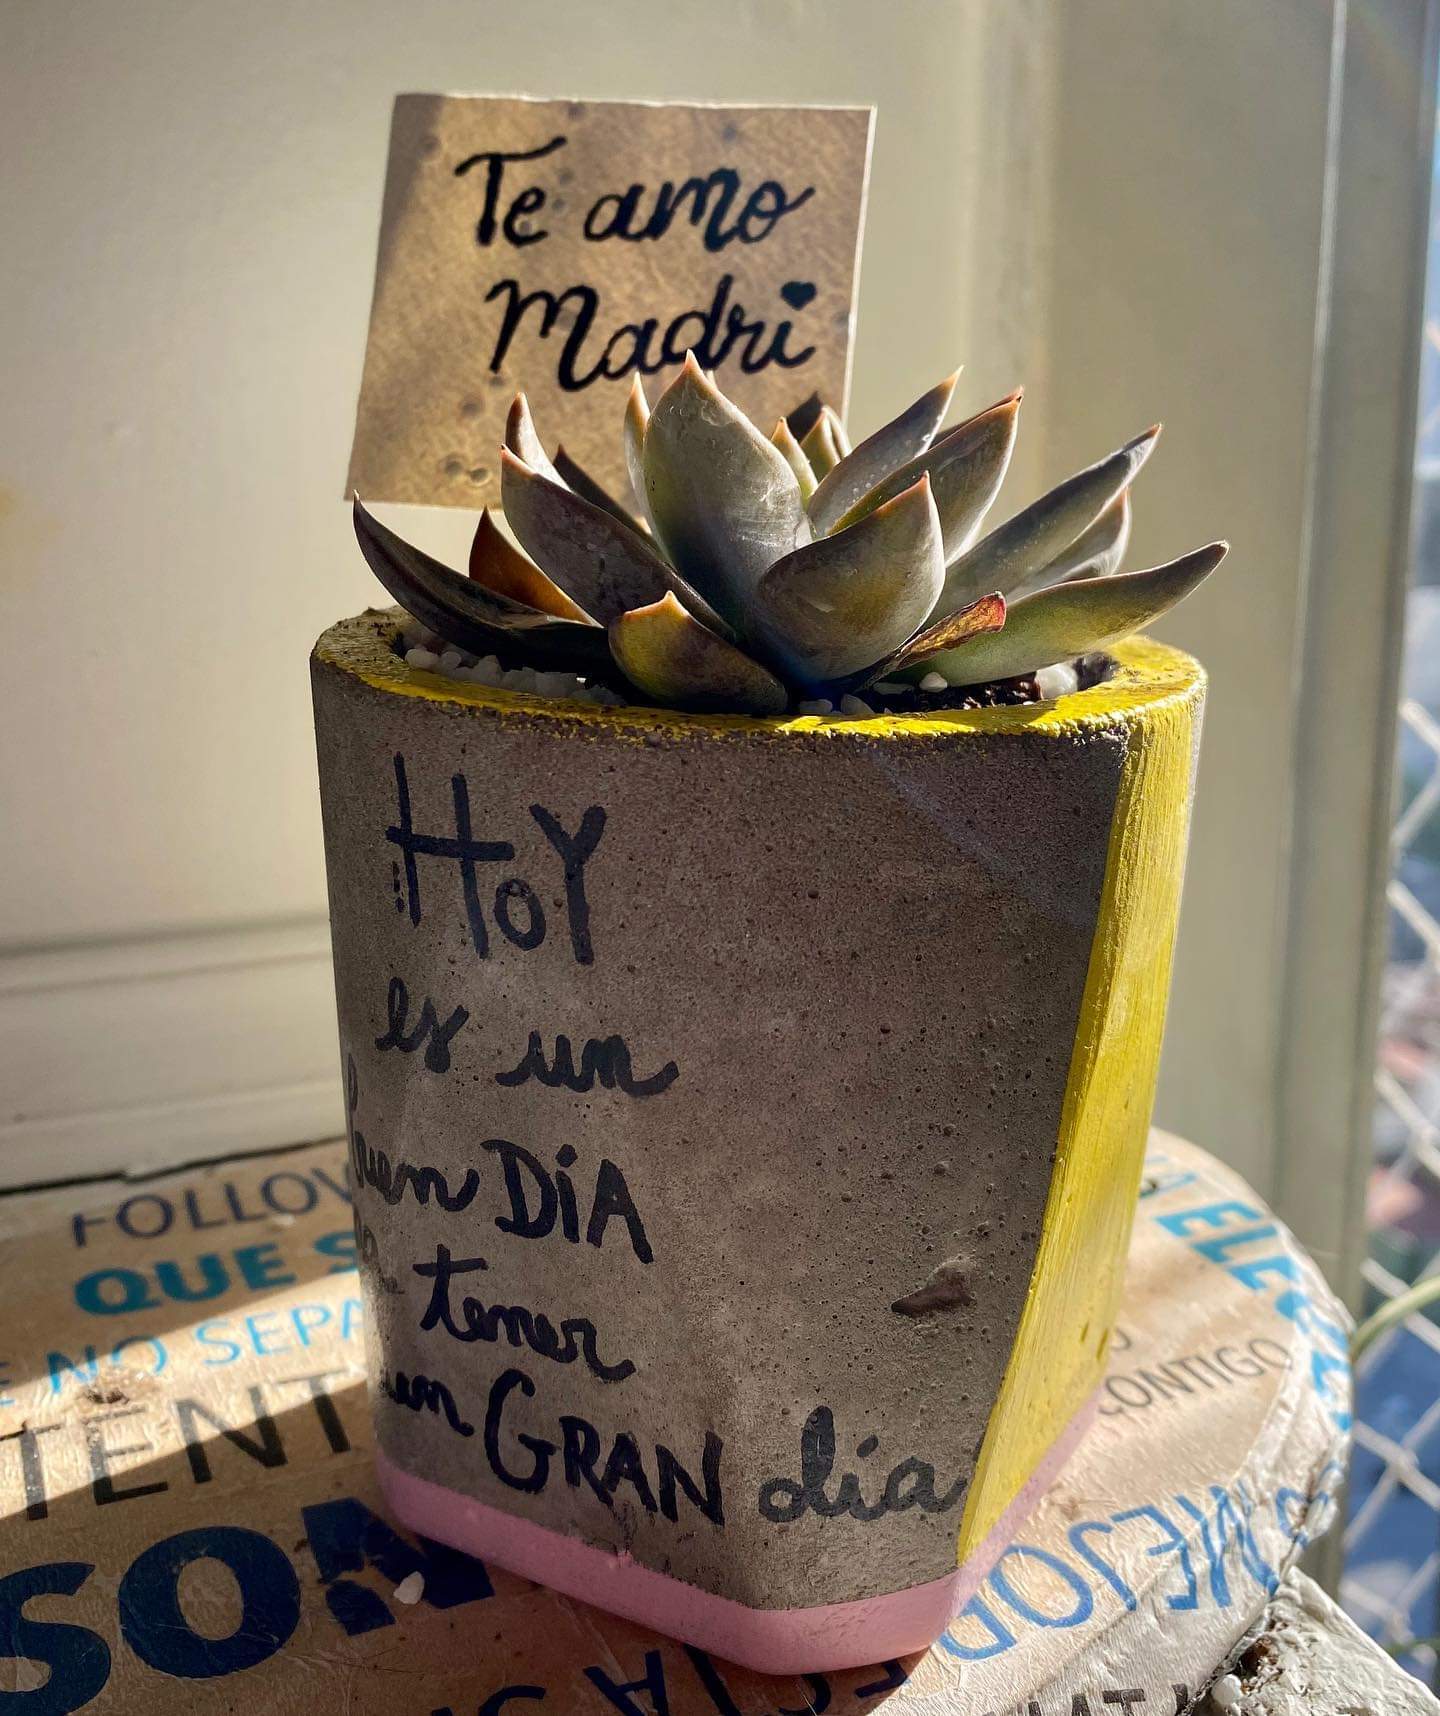 Te amo
Madri
HoY
es un
buen DíA
tener
un GRAN día
FOLLOW
QUE S
NO SEPA
TENT
SON
CONTIGO
MEJOR